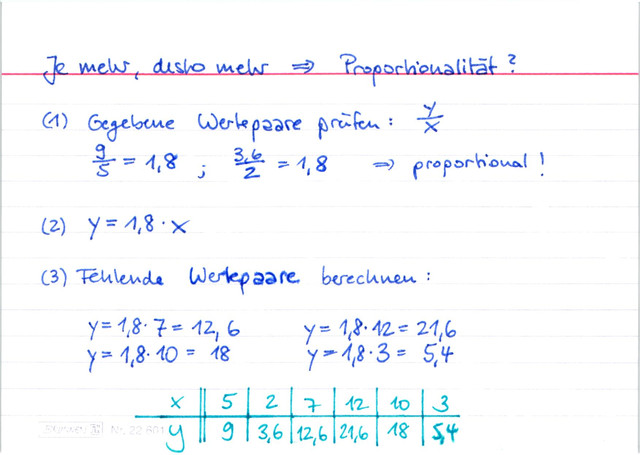 Je mehr, desto mehr ⇒ Proportionalität?
(1) Gegebene Wertepaare prüfen: y/x
9/5 = 1,8 ; 3,6/2 = 1,8 ⇒ proportional!
(2) y = 1,8 · x
(3) Fehlende Wertepaare berechnen:
y = 1,8 · 7 = 12,6 y = 1,8 · 12 = 21,6
y = 1,8 · 10 = 18 y = 1,8 · 3 = 5,4
x || 5 | 2 | 7 | 12 | 10 | 3
y || 9 | 3,6 | 12,6 | 21,6 | 18 | 5,4